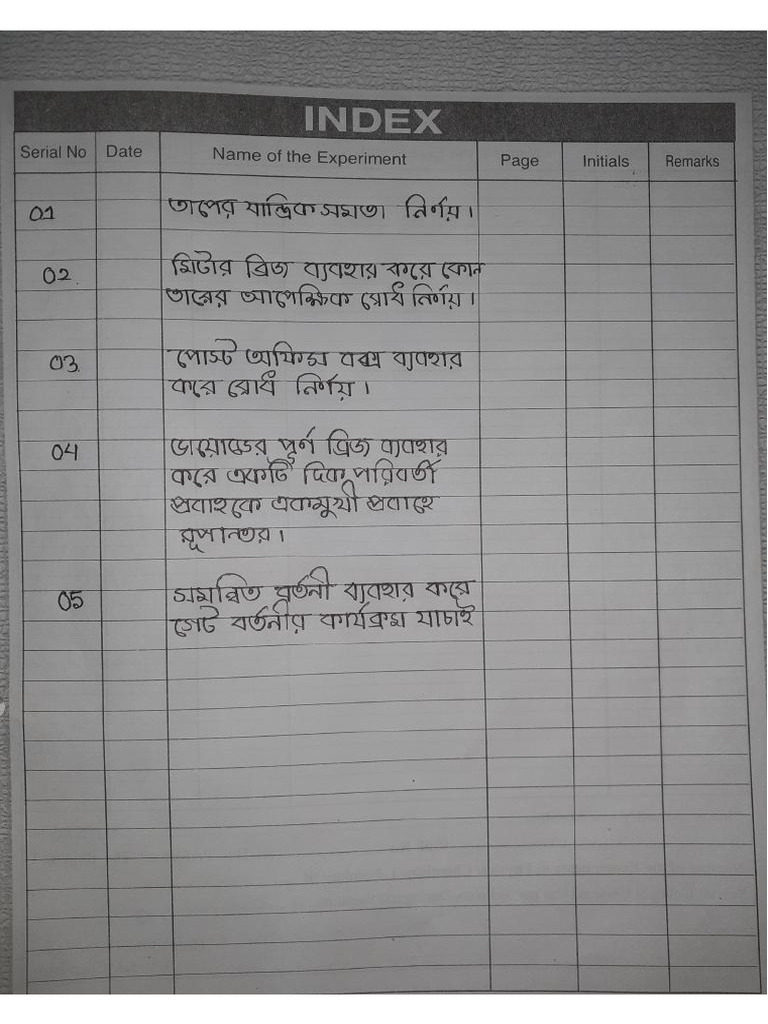 INDEX
Serial No Date Name of the Experiment Page Initials Remarks
01 তাপের যান্ত্রিক সমতা নির্ণয়।
02. মিটার ব্রিজ ব্যবহার করে কোন
তারের আপেক্ষিক রোধ নির্ণয়।
03. পোস্ট অফিস বক্স ব্যবহার
করে রোধ নির্ণয়।
04 ডায়োডের পূর্ণ ব্রিজ ব্যবহার
করে একটি দিক পরিবর্তী
প্রবাহকে একমুখী প্রবাহে
রূপান্তর।
05 সমন্বিত বর্তনী ব্যবহার করে
গেট বর্তনীর কার্যক্রম যাচাই